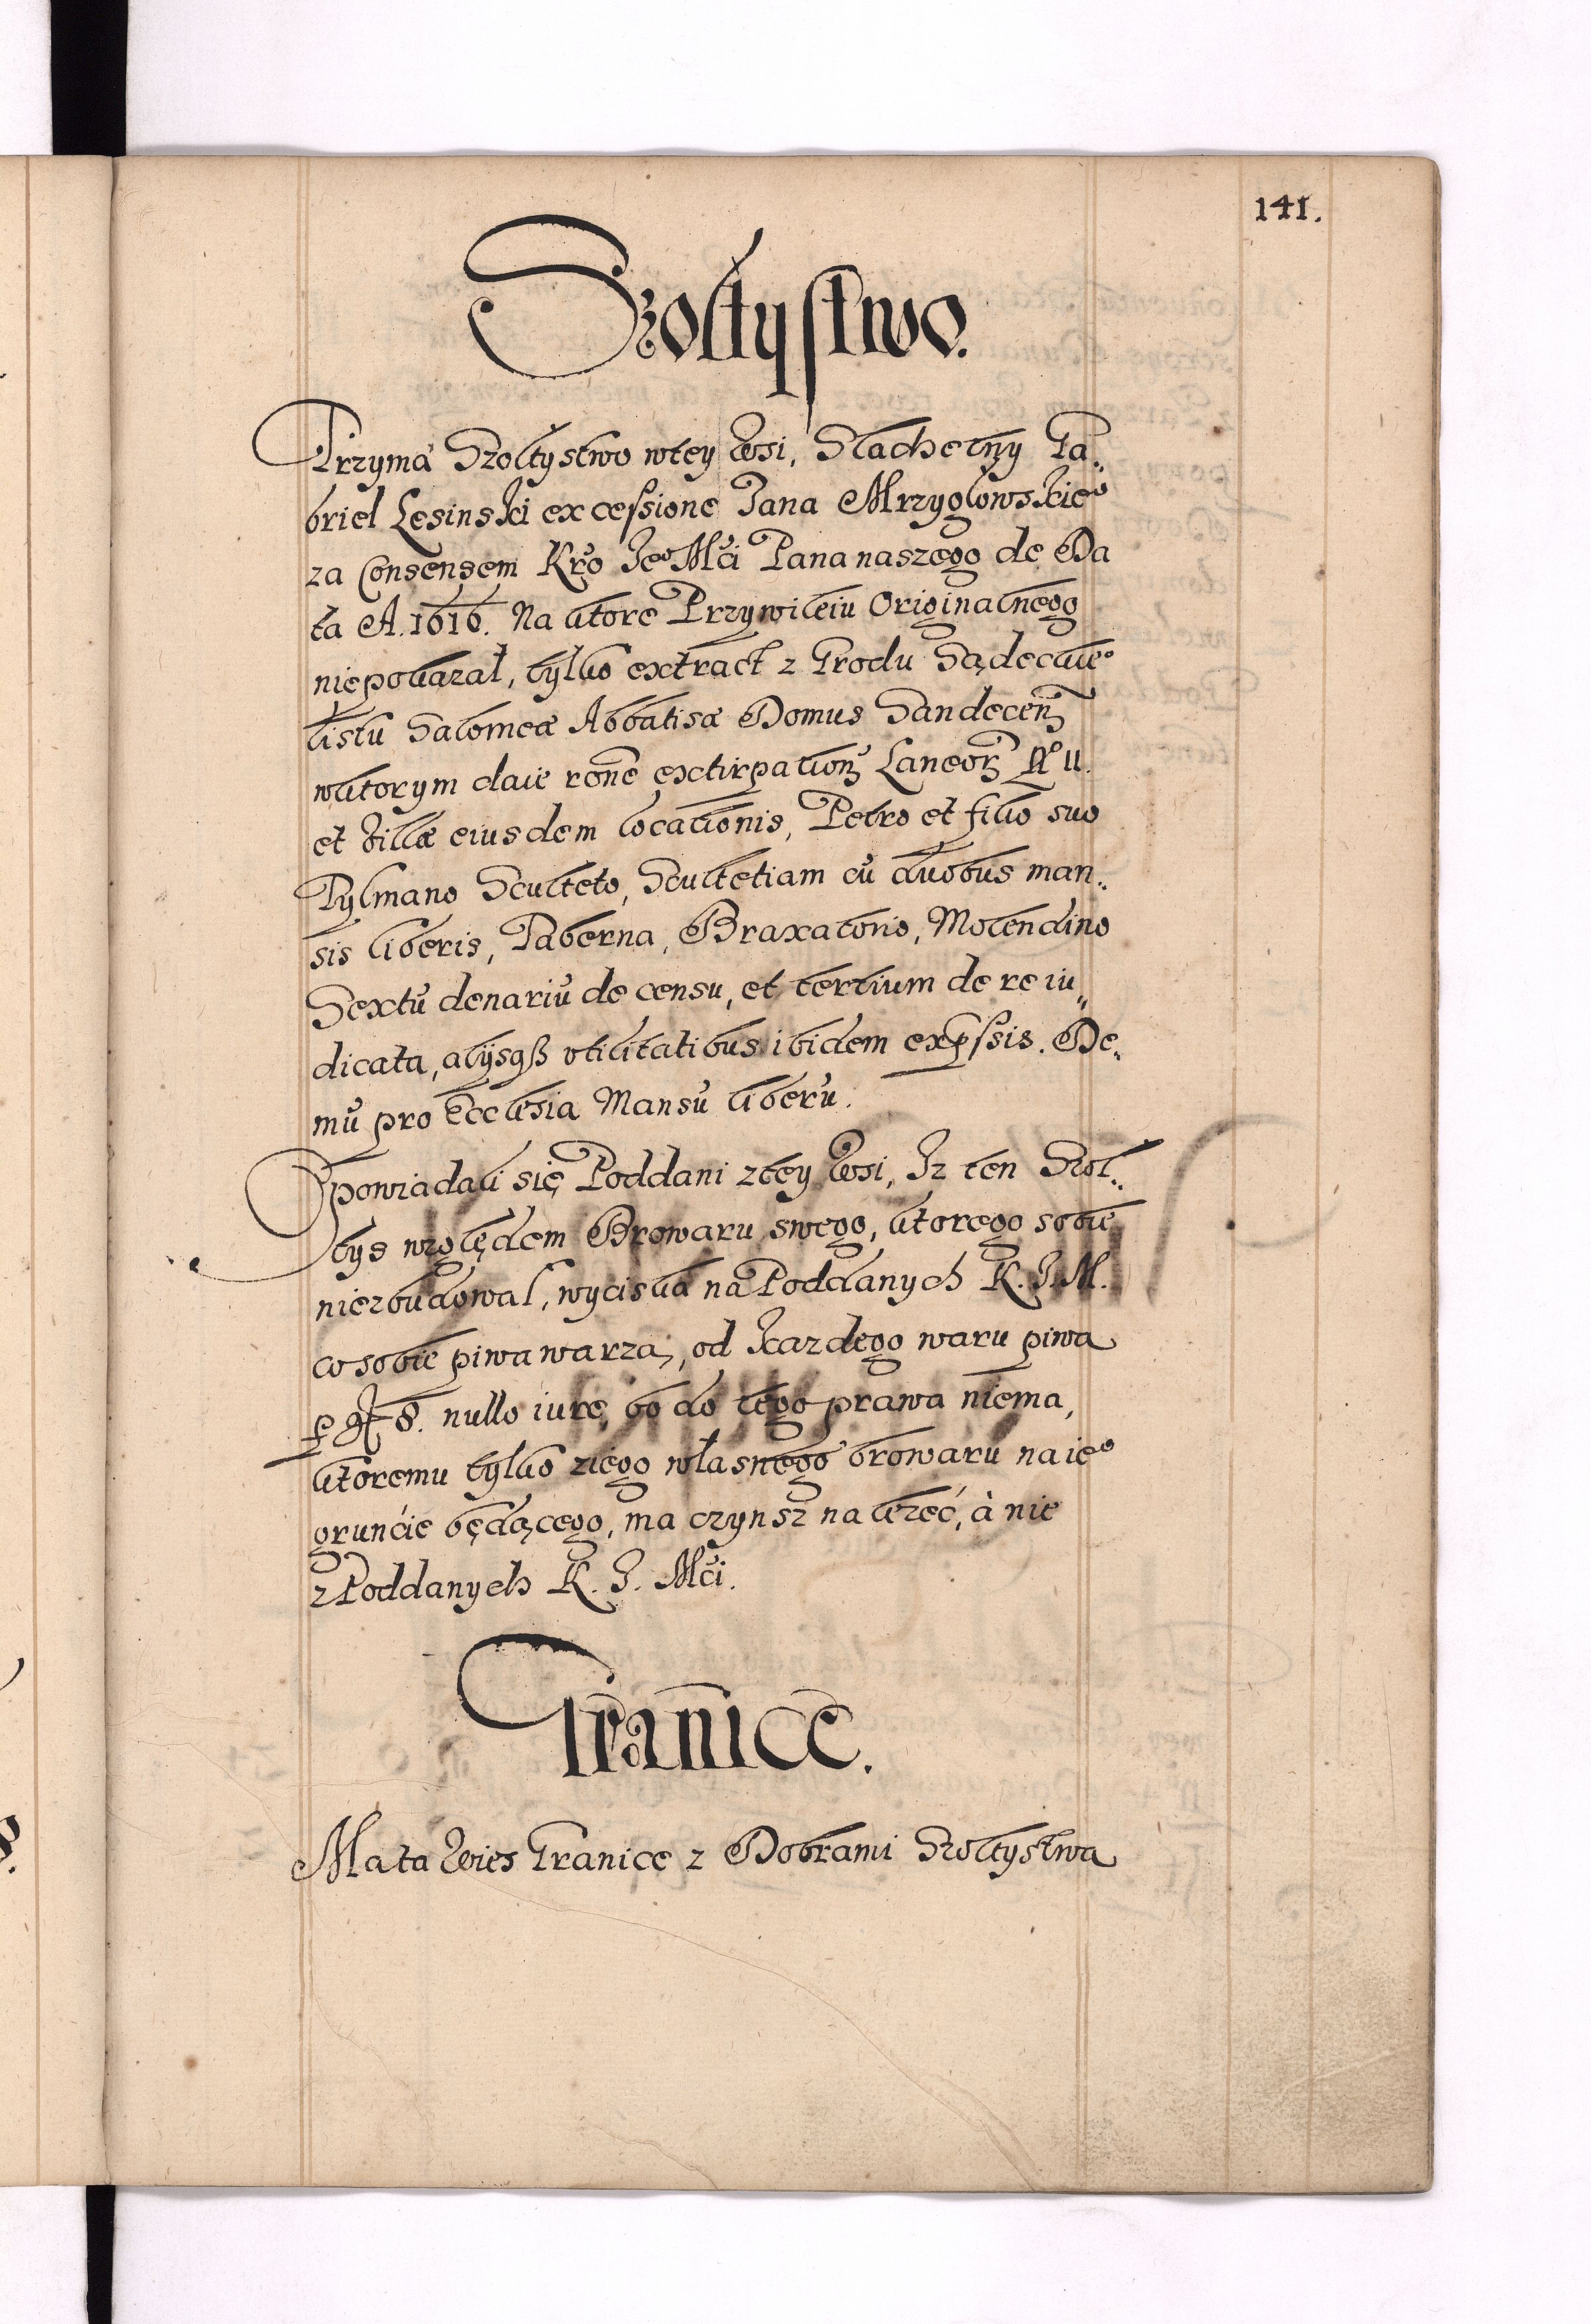 141.
Szołtystwo.
Trzyma Szołtystwo wtey Wsi, Slachetny Ga„
briel Lesinski ex cessione Jana Mrzygłowskieº
za Consensem Kro Jeº Mci Pana naszego de Da
ta A. 1616. Na ktore Przywileiu Originalnego
niepokazał, tylko extract z Grodu Sądeckieº
listu Salomeæ Abbatisæ Domus Sandecen
wktorym daie rone extirpation Laneor Nº 11.
et Villæ eiusdem locationis, Petro et filio suo
Tylmano Sculteto, Scultetiam cu duobus man„
sis liberis, Taberna, Braxatorio, Molendino
Sextu denariu de censu, et tertium de re iu„
dicata, alijsqß vtilitatibus ibidem expssis. De„
mu pro Ecclesia Mansu liberu.
Opowiadali się Poddani ztey Wsi, Iz ten Szoł„
tys względem Browaru swego, ktorego sobie
niezbudował, wyciska na Poddanych K. J. M.
co sobie piwa warzą, od kazdego waru piwa
p gr 8. nullo iure, bo do tego prawa niema,
ktoremu tylko ziego własnego browaru na ieº
grunćie będącego, ma czynsz nalezeć, à nie
z Poddanych K. J. Mci.
Granice.
Ma ta Wies Granice z Dobrami Szołtystwa